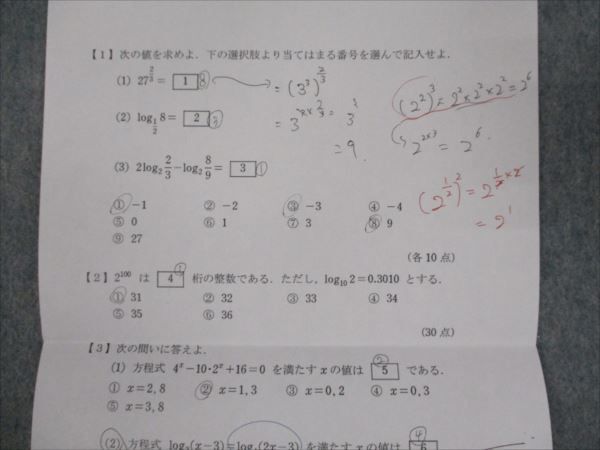 【1】次の値を求めよ．下の選択肢より当てはまる番号を選んで記入せよ．
(1) 27^{2/3} = 1 ⑧ = (3³)^{2/3}
(2) log_{1/2} 8 = 2 ③
= 9.
(3) 2log₂ 2/3 − log₂ 8/9 = 3 ①
(2²)³ = 2² × 2² × 2² = 2⁶
2^{2×3} = 2⁶
(2^{1/2})² = 2^{1/2 × 2}
= 2¹
① −1 ② −2 ③ −3 ④ −4
⑤ 0 ⑥ 1 ⑦ 3 ⑧ 9
⑨ 27
(各10点)
【2】2¹⁰⁰ は 4 ① 桁の整数である．ただし，log₁₀2=0.3010 とする．
① 31 ② 32 ③ 33 ④ 34
⑤ 35 ⑥ 36
(30点)
【3】次の問いに答えよ．
(1) 方程式 4ˣ−10·2ˣ+16=0 を満たす x の値は 5 ② である．
① x=2, 8 ② x=1, 3 ③ x=0, 2 ④ x=0, 3
⑤ x=3, 8
(2) 方程式 log₃(x−3)=log₃(2x−3) を満たす x の値は 6 ④